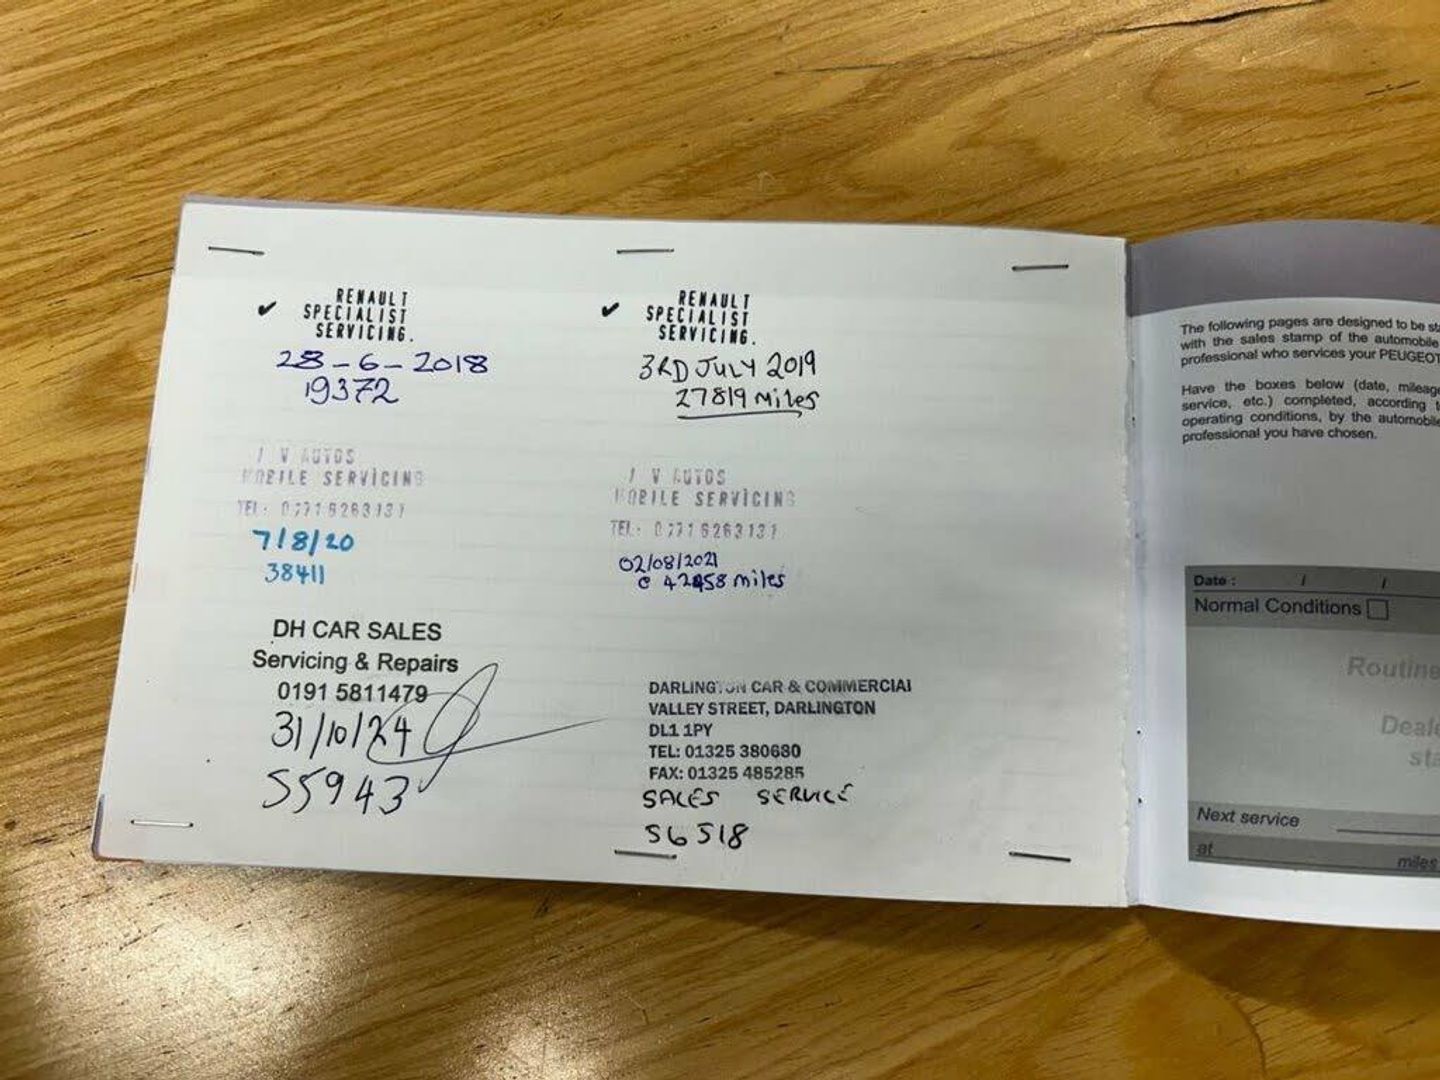 ✔ RENAULT
SPECIALIST
SERVICING.
28-6-2018
19372
✔ RENAULT
SPECIALIST
SERVICING.
3RD JULY 2019
27819 Miles
J V AUTOS
MOBILE SERVICING
TEL: 07716263131
7/8/20
38411
J V AUTOS
MOBILE SERVICING
TEL: 07716263131
02/08/2021
@ 42458 miles
DH CAR SALES
Servicing & Repairs
0191 5811479
31/10/24
55943
DARLINGTON CAR & COMMERCIAL
VALLEY STREET, DARLINGTON
DL1 1PY
TEL: 01325 380680
FAX: 01325 485285
SALES SERVICE
56518
The following pages are designed to be
with the sales stamp of the automobile
professional who services your PEUGEOT
Have the boxes below (date, mileage
service, etc.) completed, according
operating conditions, by the automobile
professional you have chosen.
Date : / /
Normal Conditions
Routine
Next service
at miles